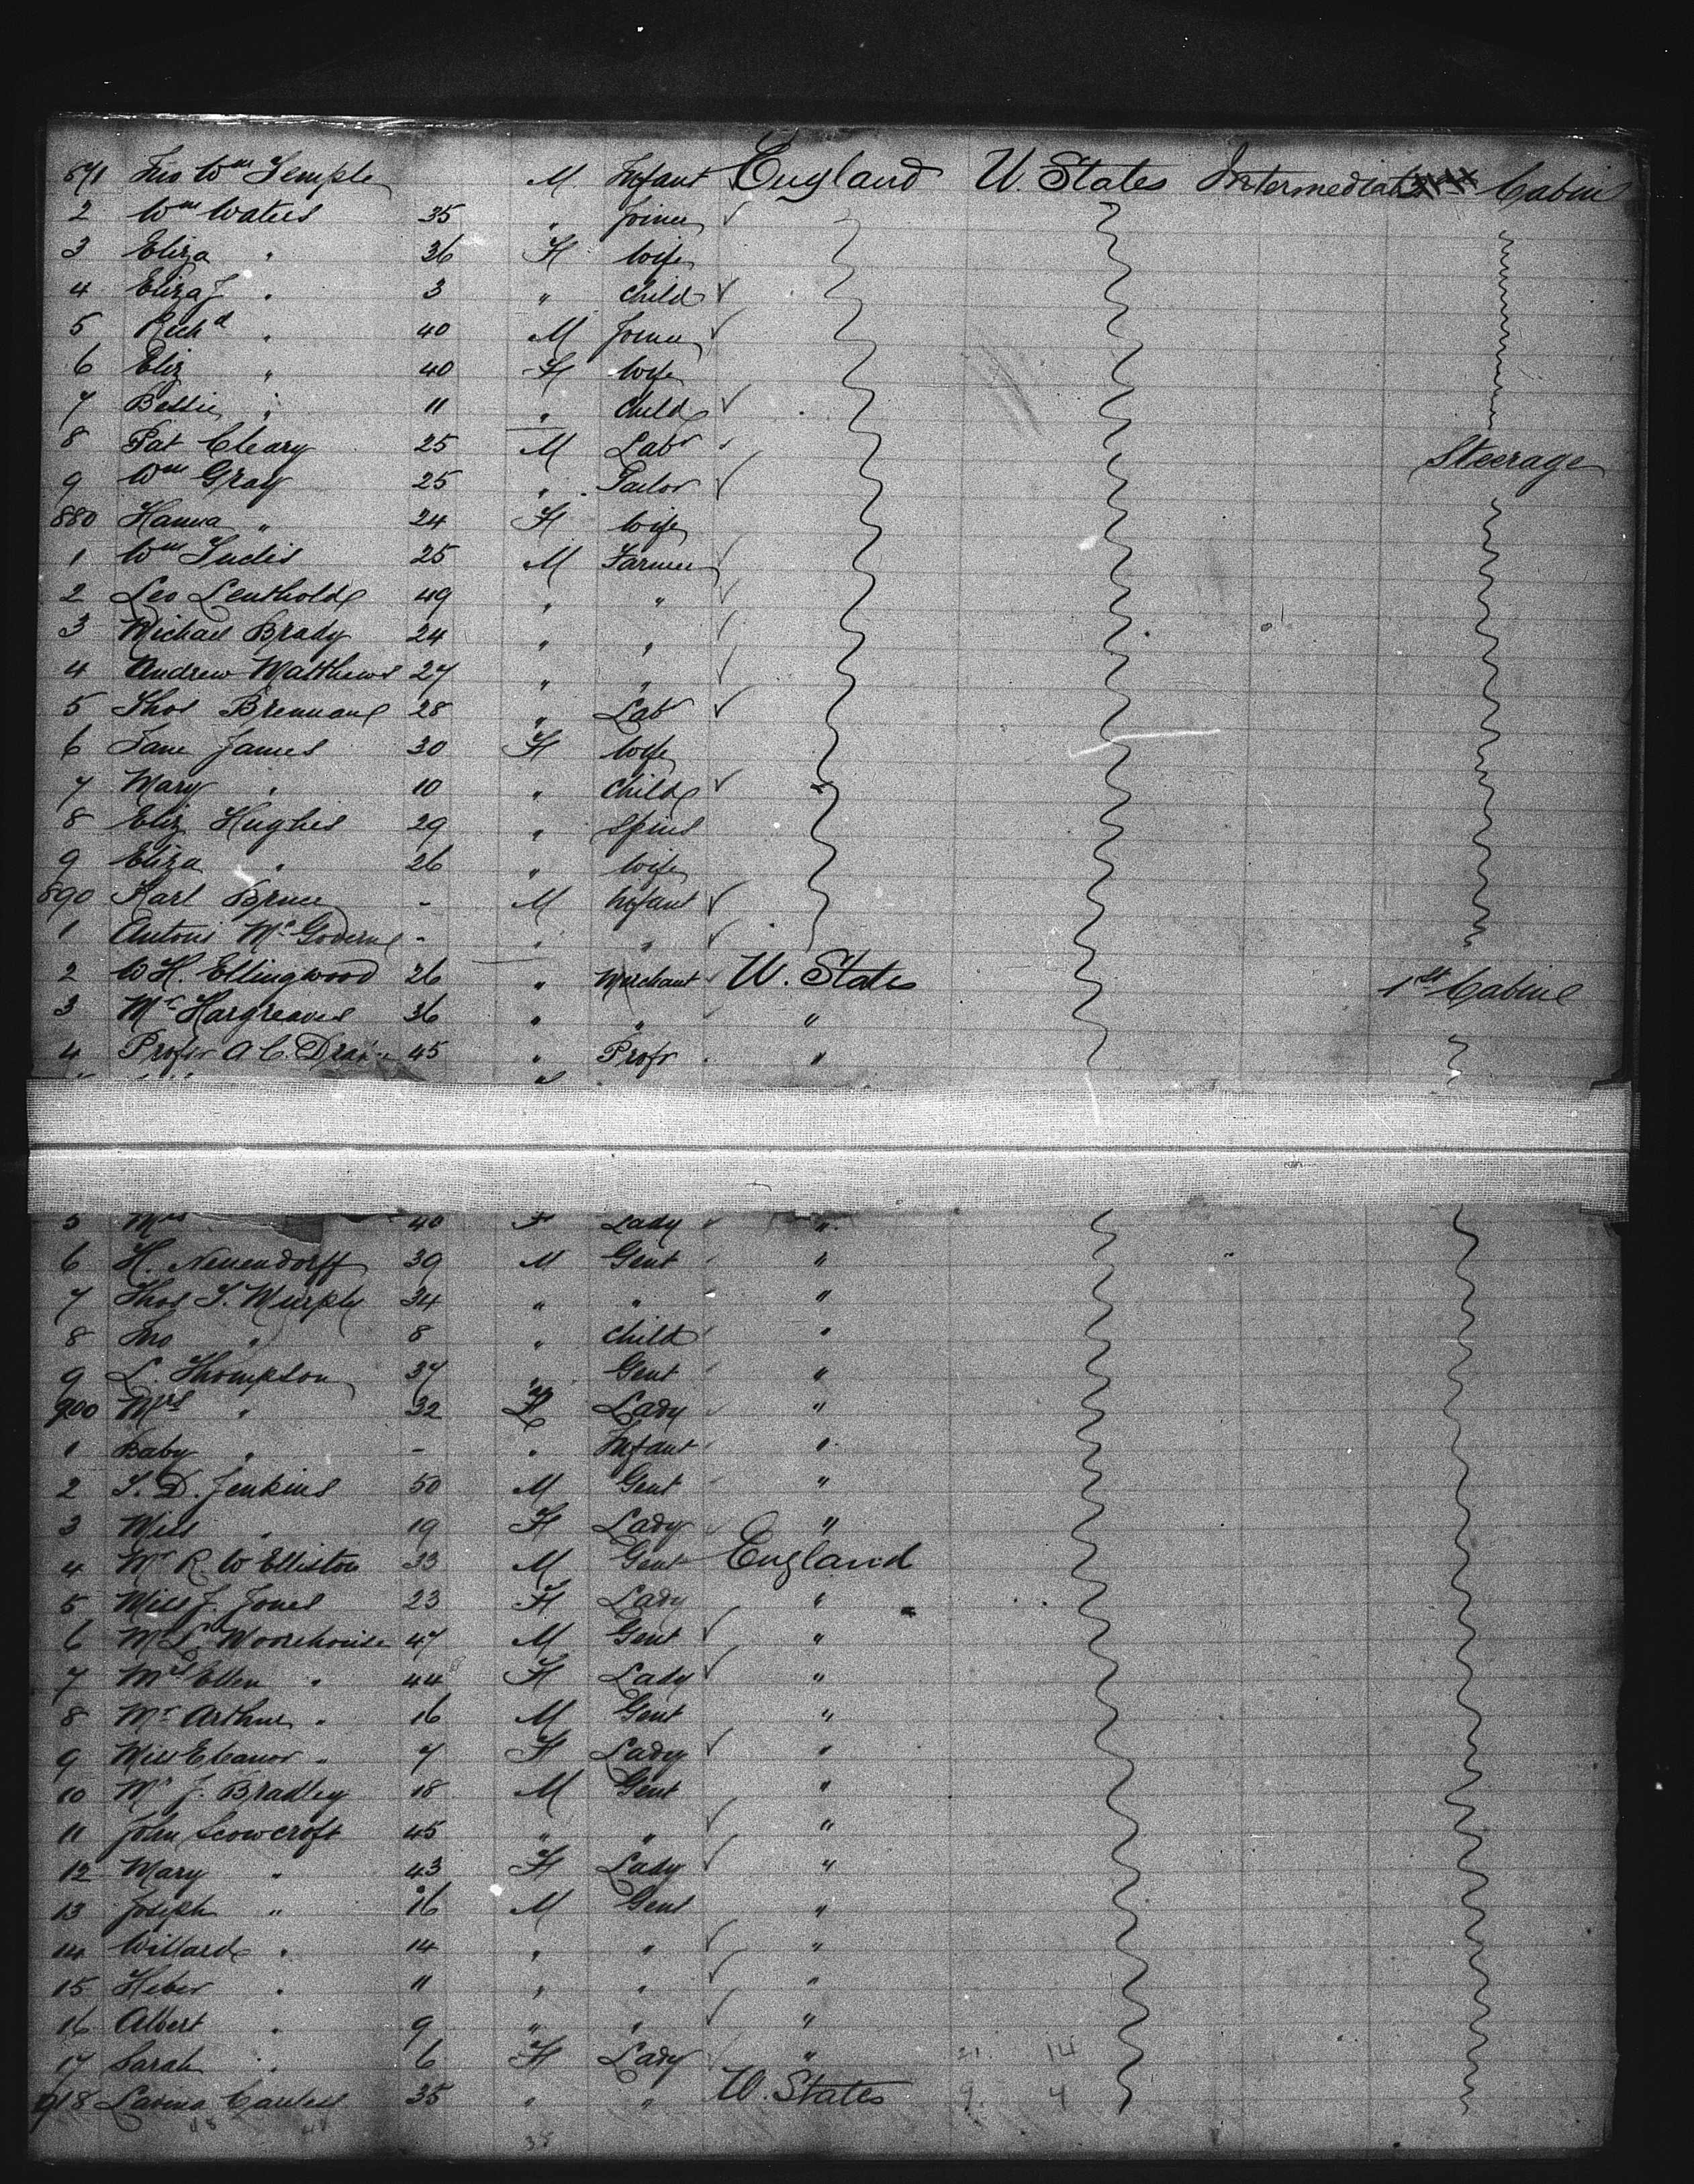 871 Jno Wm Temple M Infant England U. States Intermediate Cabin
2 Wm Waters 35 " Joiner
3 Eliza " 36 F wife
4 Eliza J " 3 " child
5 Richd " 40 M Joiner
6 Eliz " 40 F wife
7 Bessie " 11 " child
8 Pat Cleary 25 M Labr Steerage
9 Wm Gray 25 " Tailor
880 Hanna " 24 F wife
1 Wm 25 M Farmer
2 Leo Leuthold 49 " "
3 Michael Brady 24 " "
4 Andrew Matthews 27 " "
5 Thos Brennan 28 " Labr
6 Jane James 30 F wife
7 Mary " 10 " child
8 Eliz Hughes 29 " Spins
9 Eliza " 26 " wife
890 Karl M Infant
1 Antoni McGovern - " "
2 W H. Ellingwood 26 " Merchant U. States 1st Cabin
3 Mr Hargreaves 36 " " "
4 Profsr A C. 45 " Profr "
5 Mrs 40 F Lady "
6 H. Neuendorff 39 M Gent "
7 Thos J. Murphy 34 " " "
8 Jno " 8 " child "
9 L. Thompson 37 " Gent "
900 Mrs " 32 F Lady "
1 Baby " - " Infant "
2 T. D. Jenkins 50 M Gent "
3 Miss " 19 F Lady "
4 Mr R W Elliston 33 M Gent England
5 Miss J. Jones 23 F Lady "
6 Mr S. Moorehouse 47 M Gent "
7 Mrs Ellen " 44 F Lady "
8 Mr Arthur " 16 M Gent "
9 Miss Eleanor " 7 F Lady "
10 Mr J. Bradley 18 M Gent "
11 John Scowcroft 45 " " "
12 Mary " 43 F Lady "
13 Joseph " 16 M Gent "
14 Willard " 14 " " "
15 Heber " 11 " " "
16 Albert " 9 " " "
17 Sarah " 6 F Lady " 21 14
918 Lavina 35 " " U. States 9 4